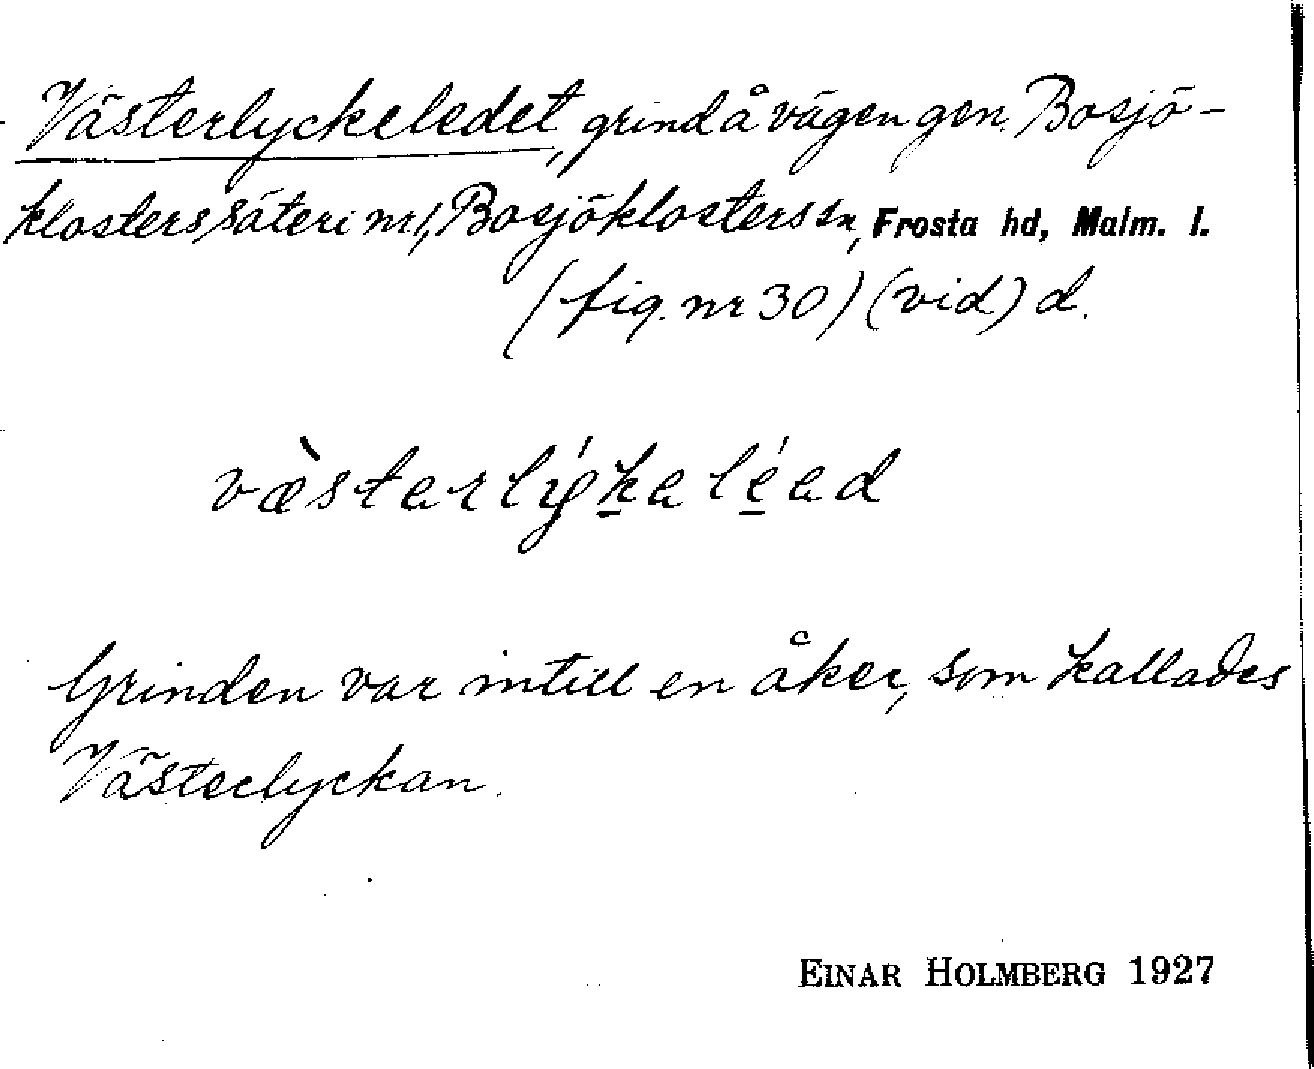 Västerlyckeledet, grind å vägen gen. Bosjö-
klosters säteri nr 1, Bosjöklosters sn, Frosta hd, Malm. l.
(fig. nr 30) (vid) d.
væ̀starlýk̲a lé̲ad
Grinden var intill en åker, som kallades
Västerlyckan.
EINAR HOLMBERG 1927